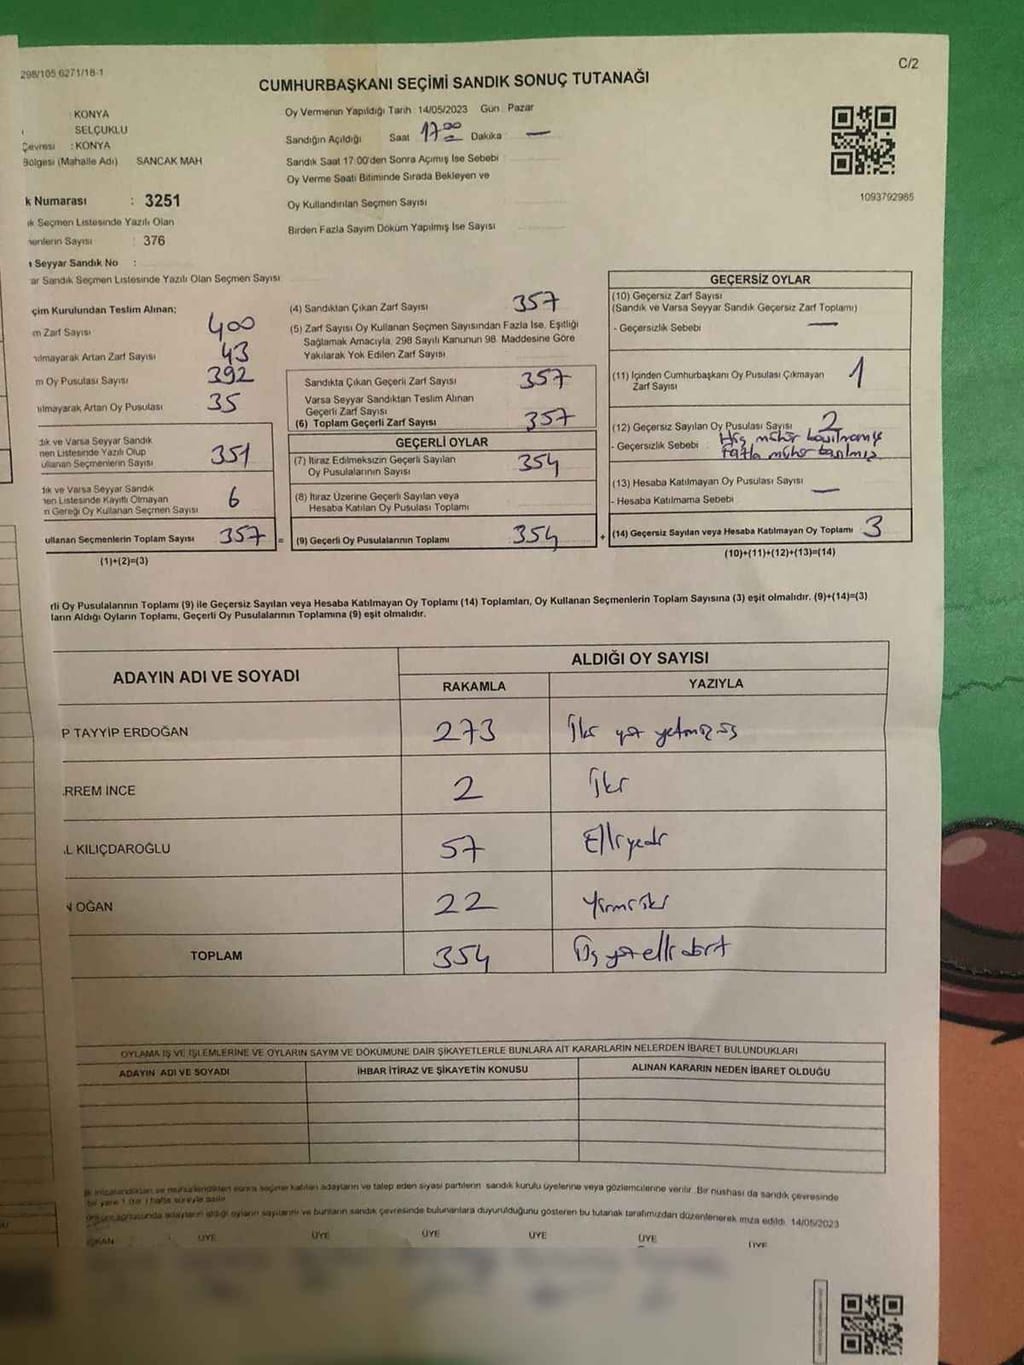 298/105 6271/18-1
C/2
CUMHURBAŞKANI SEÇİMİ SANDIK SONUÇ TUTANAĞI
: KONYA
SELÇUKLU
Çevresi : KONYA
Bölgesi (Mahalle Adı) SANCAK MAH
k Numarası : 3251
ık Seçmen Listesinde Yazılı Olan
menlerin Sayısı : 376
ı Seyyar Sandık No :
ar Sandık Seçmen Listesinde Yazılı Olan Seçmen Sayısı
Oy Vermenin Yapıldığı Tarih 14/05/2023 Gün Pazar
Sandığın Açıldığı Saat 17 00 Dakika —
Sandık Saat 17:00'den Sonra Açımış İse Sebebi
Oy Verme Saati Bitiminde Sırada Bekleyen ve
Oy Kullandırılan Seçmen Sayısı
Birden Fazla Sayım Döküm Yapılmış İse Sayısı
1093792985
çim Kurulundan Teslim Alınan;
m Zarf Sayısı 400
ılmayarak Artan Zarf Sayısı 43
m Oy Pusulası Sayısı 392
ılmayarak Artan Oy Pusulası 35
dık ve Varsa Seyyar Sandık
nen Listesinde Yazılı Olup
ullanan Seçmenlerin Sayısı 351
dık ve Varsa Seyyar Sandık
nen Listesinde Kayıtlı Olmayan
n Gereği Oy Kullanan Seçmen Sayısı 6
ullanan Seçmenlerin Toplam Sayısı 357 =
(1)+(2)=(3)
(4) Sandıktan Çıkan Zarf Sayısı 357
(5) Zarf Sayısı Oy Kullanan Seçmen Sayısından Fazla İse, Eşitliği
Sağlamak Amacıyla, 298 Sayılı Kanunun 98. Maddesine Göre
Yakılarak Yok Edilen Zarf Sayısı
Sandıkta Çıkan Geçerli Zarf Sayısı 357
Varsa Seyyar Sandıktan Teslim Alınan
Geçerli Zarf Sayısı
(6) Toplam Geçerli Zarf Sayısı 357
GEÇERLİ OYLAR
(7) İtiraz Edilmeksizin Geçerli Sayılan
Oy Pusulalarının Sayısı 354
(8) İtiraz Üzerine Geçerli Sayılan veya
Hesaba Katılan Oy Pusulası Toplamı
(9) Geçerli Oy Pusulalarının Toplamı 354 +
GEÇERSİZ OYLAR
(10) Geçersiz Zarf Sayısı
(Sandık ve Varsa Seyyar Sandık Geçersiz Zarf Toplamı)
- Geçersizlik Sebebi —
(11) İçinden Cumhurbaşkanı Oy Pusulası Çıkmayan
Zarf Sayısı 1
(12) Geçersiz Sayılan Oy Pusulası Sayısı 2
- Geçersizlik Sebebi : Hiç mühür basılmamış
Fazla mühür basılmış
(13) Hesaba Katılmayan Oy Pusulası Sayısı
- Hesaba Katılmama Sebebi —
(14) Geçersiz Sayılan veya Hesaba Katılmayan Oy Toplamı 3
(10)+(11)+(12)+(13)=(14)
rli Oy Pusulalarının Toplamı (9) ile Geçersiz Sayılan veya Hesaba Katılmayan Oy Toplamı (14) Toplamları, Oy Kullanan Seçmenlerin Toplam Sayısına (3) eşit olmalıdır. (9)+(14)=(3)
ların Aldığı Oyların Toplamı, Geçerli Oy Pusulalarının Toplamına (9) eşit olmalıdır.
ADAYIN ADI VE SOYADI ALDIĞI OY SAYISI
RAKAMLA YAZIYLA
P TAYYİP ERDOĞAN 273 İki yüz yetmiş üç
RREM İNCE 2 İki
L KILIÇDAROĞLU 57 Elliyedi
N OĞAN 22 Yirmiiki
TOPLAM 354 Üç yüz elli dört
OYLAMA İŞ VE İŞLEMLERİNE VE OYLARIN SAYIM VE DÖKÜMÜNE DAİR ŞİKAYETLERLE BUNLARA AİT KARARLARIN NELERDEN İBARET BULUNDUKLARI
ADAYIN ADI VE SOYADI İHBAR İTİRAZ VE ŞİKAYETİN KONUSU ALINAN KARARIN NEDEN İBARET OLDUĞU
imzalandıktan ve mühürlendikten sonra seçime katılan adayların ve talep eden siyasi partilerin sandık kurulu üyelerine veya gözlemcilerine verilir. Bir nüshası da sandık çevresinde
bir yere 1 (bir) hafta süreyle asılır.
adayların aldığı oyların sayılarını ve bunların sandık çevresinde bulunanlara duyurulduğunu gösteren bu tutanak tarafımızdan düzenlenerek imza edildi. 14/05/2023
ŞKAN ÜYE ÜYE ÜYE ÜYE ÜYE ÜYE